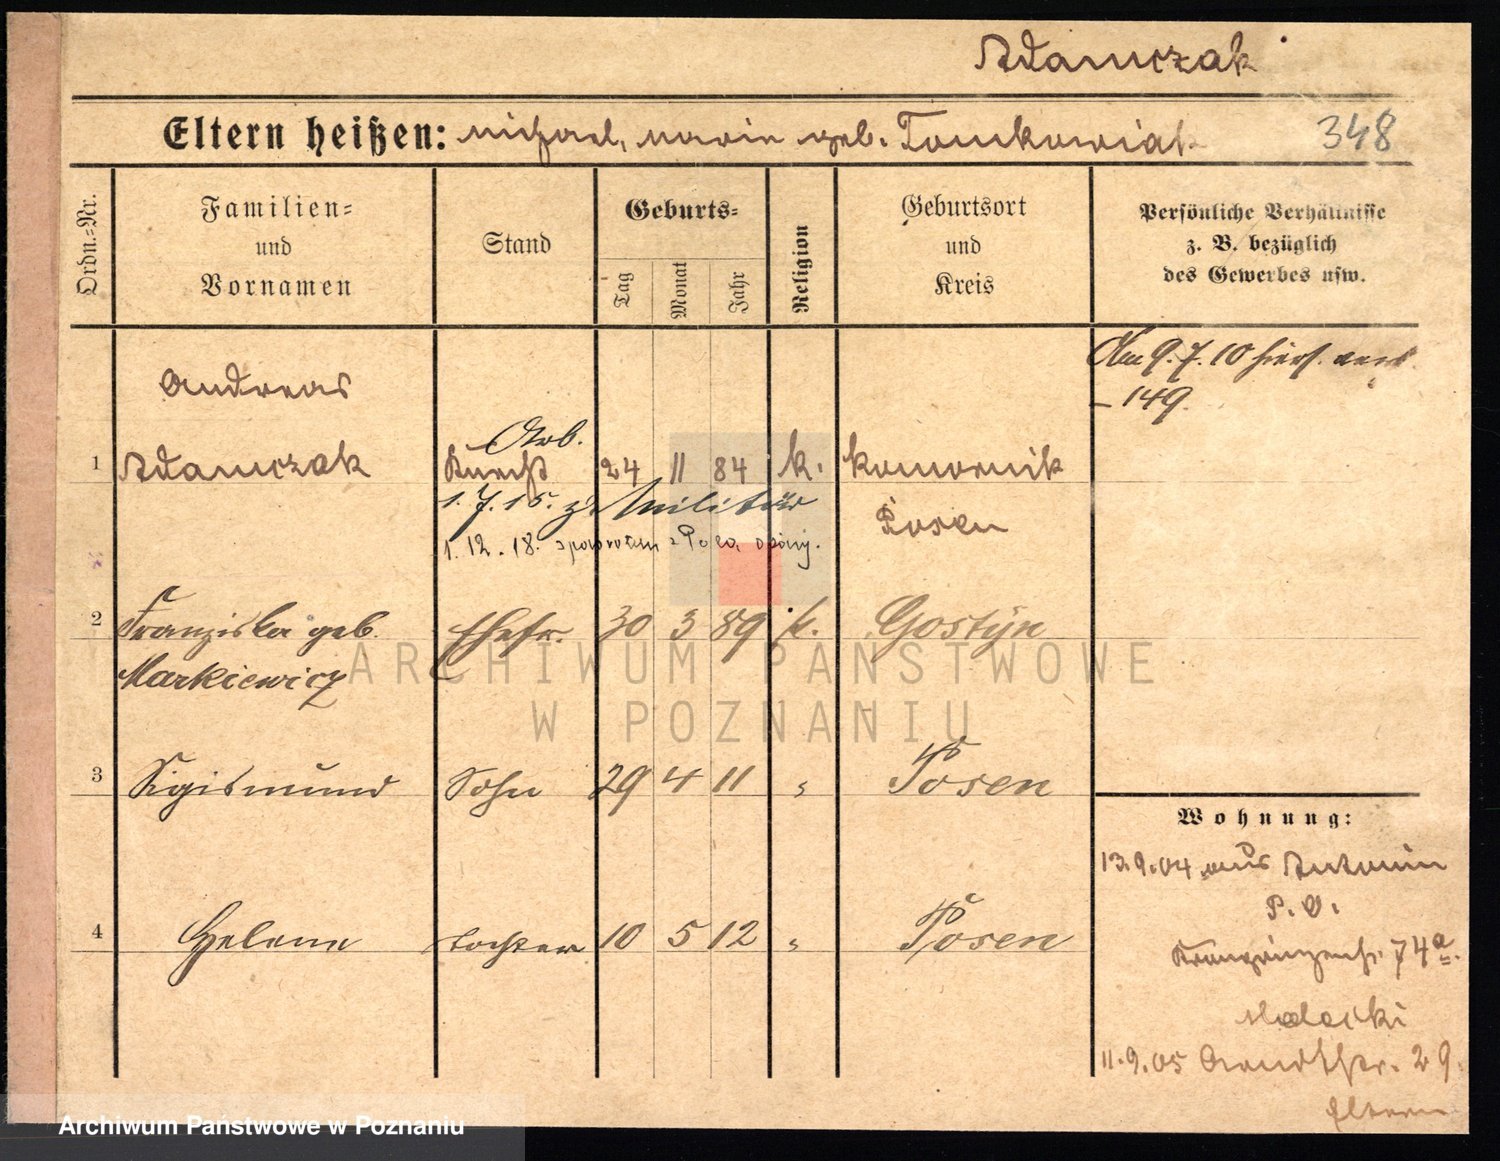 Adamczak
Eltern heißen: Michael, Marie geb. Tomkowiak 348
Ordn.-Nr.
Familien- und Vornamen
Stand
Geburts-
Tag
Monat
Jahr
Religion
Geburtsort und Kreis
Persönliche Verhältnisse
z. B. bezüglich
des Gewerbes usw.
Am 9.7.10 hiers. verh.
– 149.
Andreas
Arb.
1 Adamczak Knecht 24 11 84 k. Komornik
1.7.15. z. Militär
Posen
1.12.18.
2 Franziska geb. Ehefr. 30 3 89 k. Gostyn
Markiewicz
3 Sigismund Sohn 29 4 11 " Posen
4 Helene Tochter 10 5 12 " Posen
Wohnung:
13.9.04 aus Antonin
P. O.
Kronprinzenstr. 74a.
11.9.05 Arndtstr. 29.
Eltern
ARCHIWUM PAŃSTWOWE
W POZNANIU
Archiwum Państwowe w Poznaniu